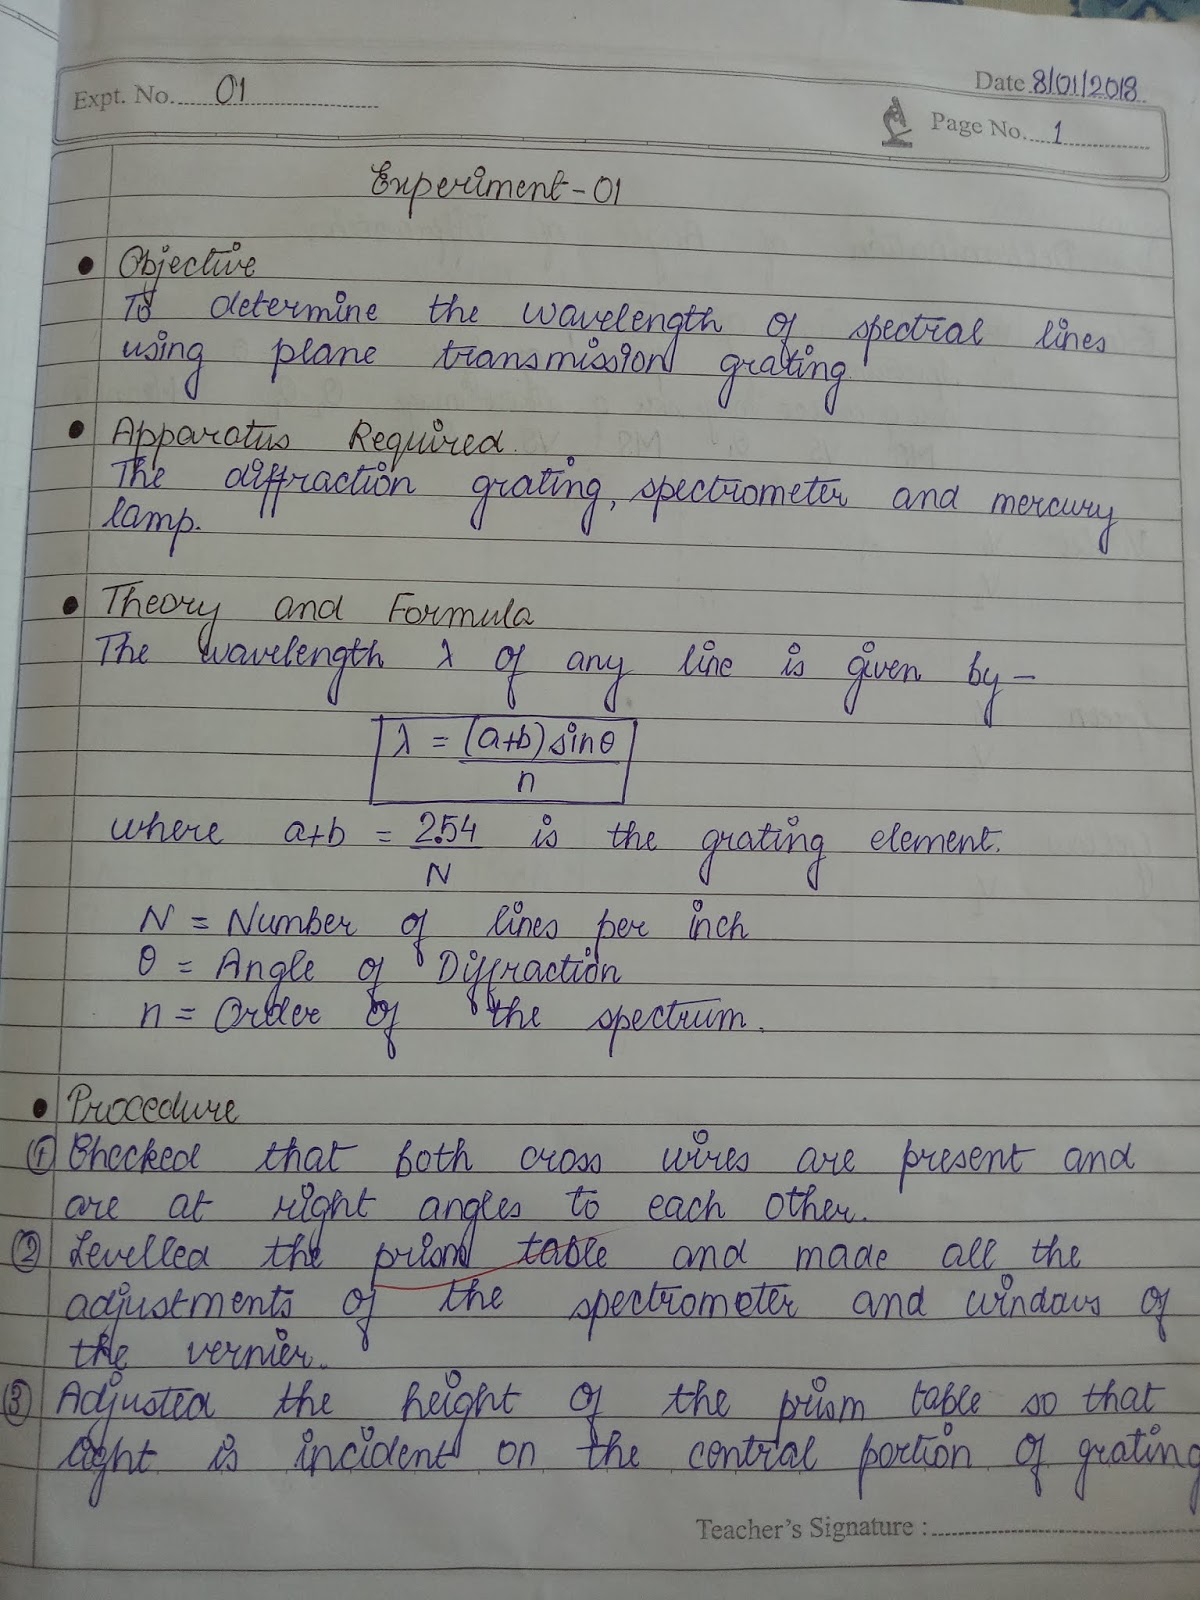 Date 8/01/2018
Expt. No. 01
Page No. 1
Experiment-01
• Objective
To determine the wavelength of spectral lines
using plane transmission grating
• Apparatus Required.
The diffraction grating, spectrometer and mercury
lamp.
• Theory and Formula
The wavelength λ of any line is given by —
λ = (a+b) sinθ
n
where a+b = 2.54 is the grating element.
N
N = Number of lines per inch
θ = Angle of Diffraction
n = Order of the spectrum.
• Procedure
① Checked that both cross wires are present and
are at right angles to each other.
② Levelled the prism table and made all the
adjustments of the spectrometer and windows of
the vernier.
③ Adjusted the height of the prism table so that
light is incident on the central portion of grating
Teacher's Signature :